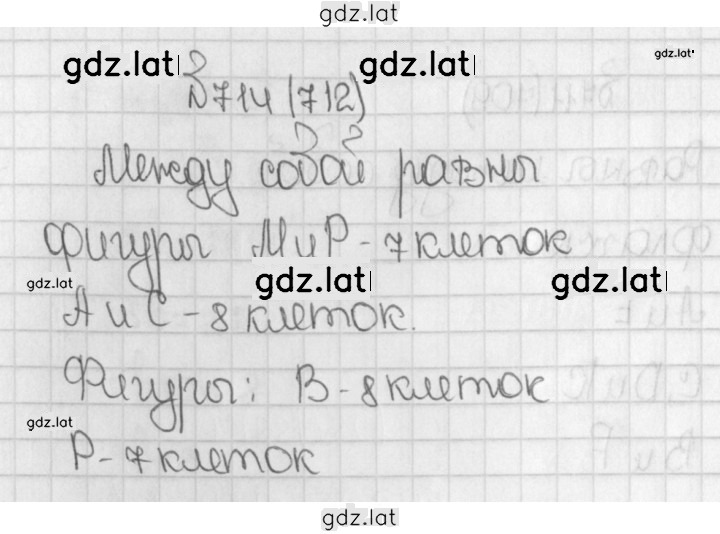 gdz.lat
gdz.lat gdz.lat gdz.lat
№714 (712)
Между собой равны
фигуры М и Р - 7 клеток
gdz.lat gdz.lat gdz.lat
А и С - 8 клеток.
Фигуры: В - 8 клеток
gdz.lat
Р - 7 клеток
gdz.lat